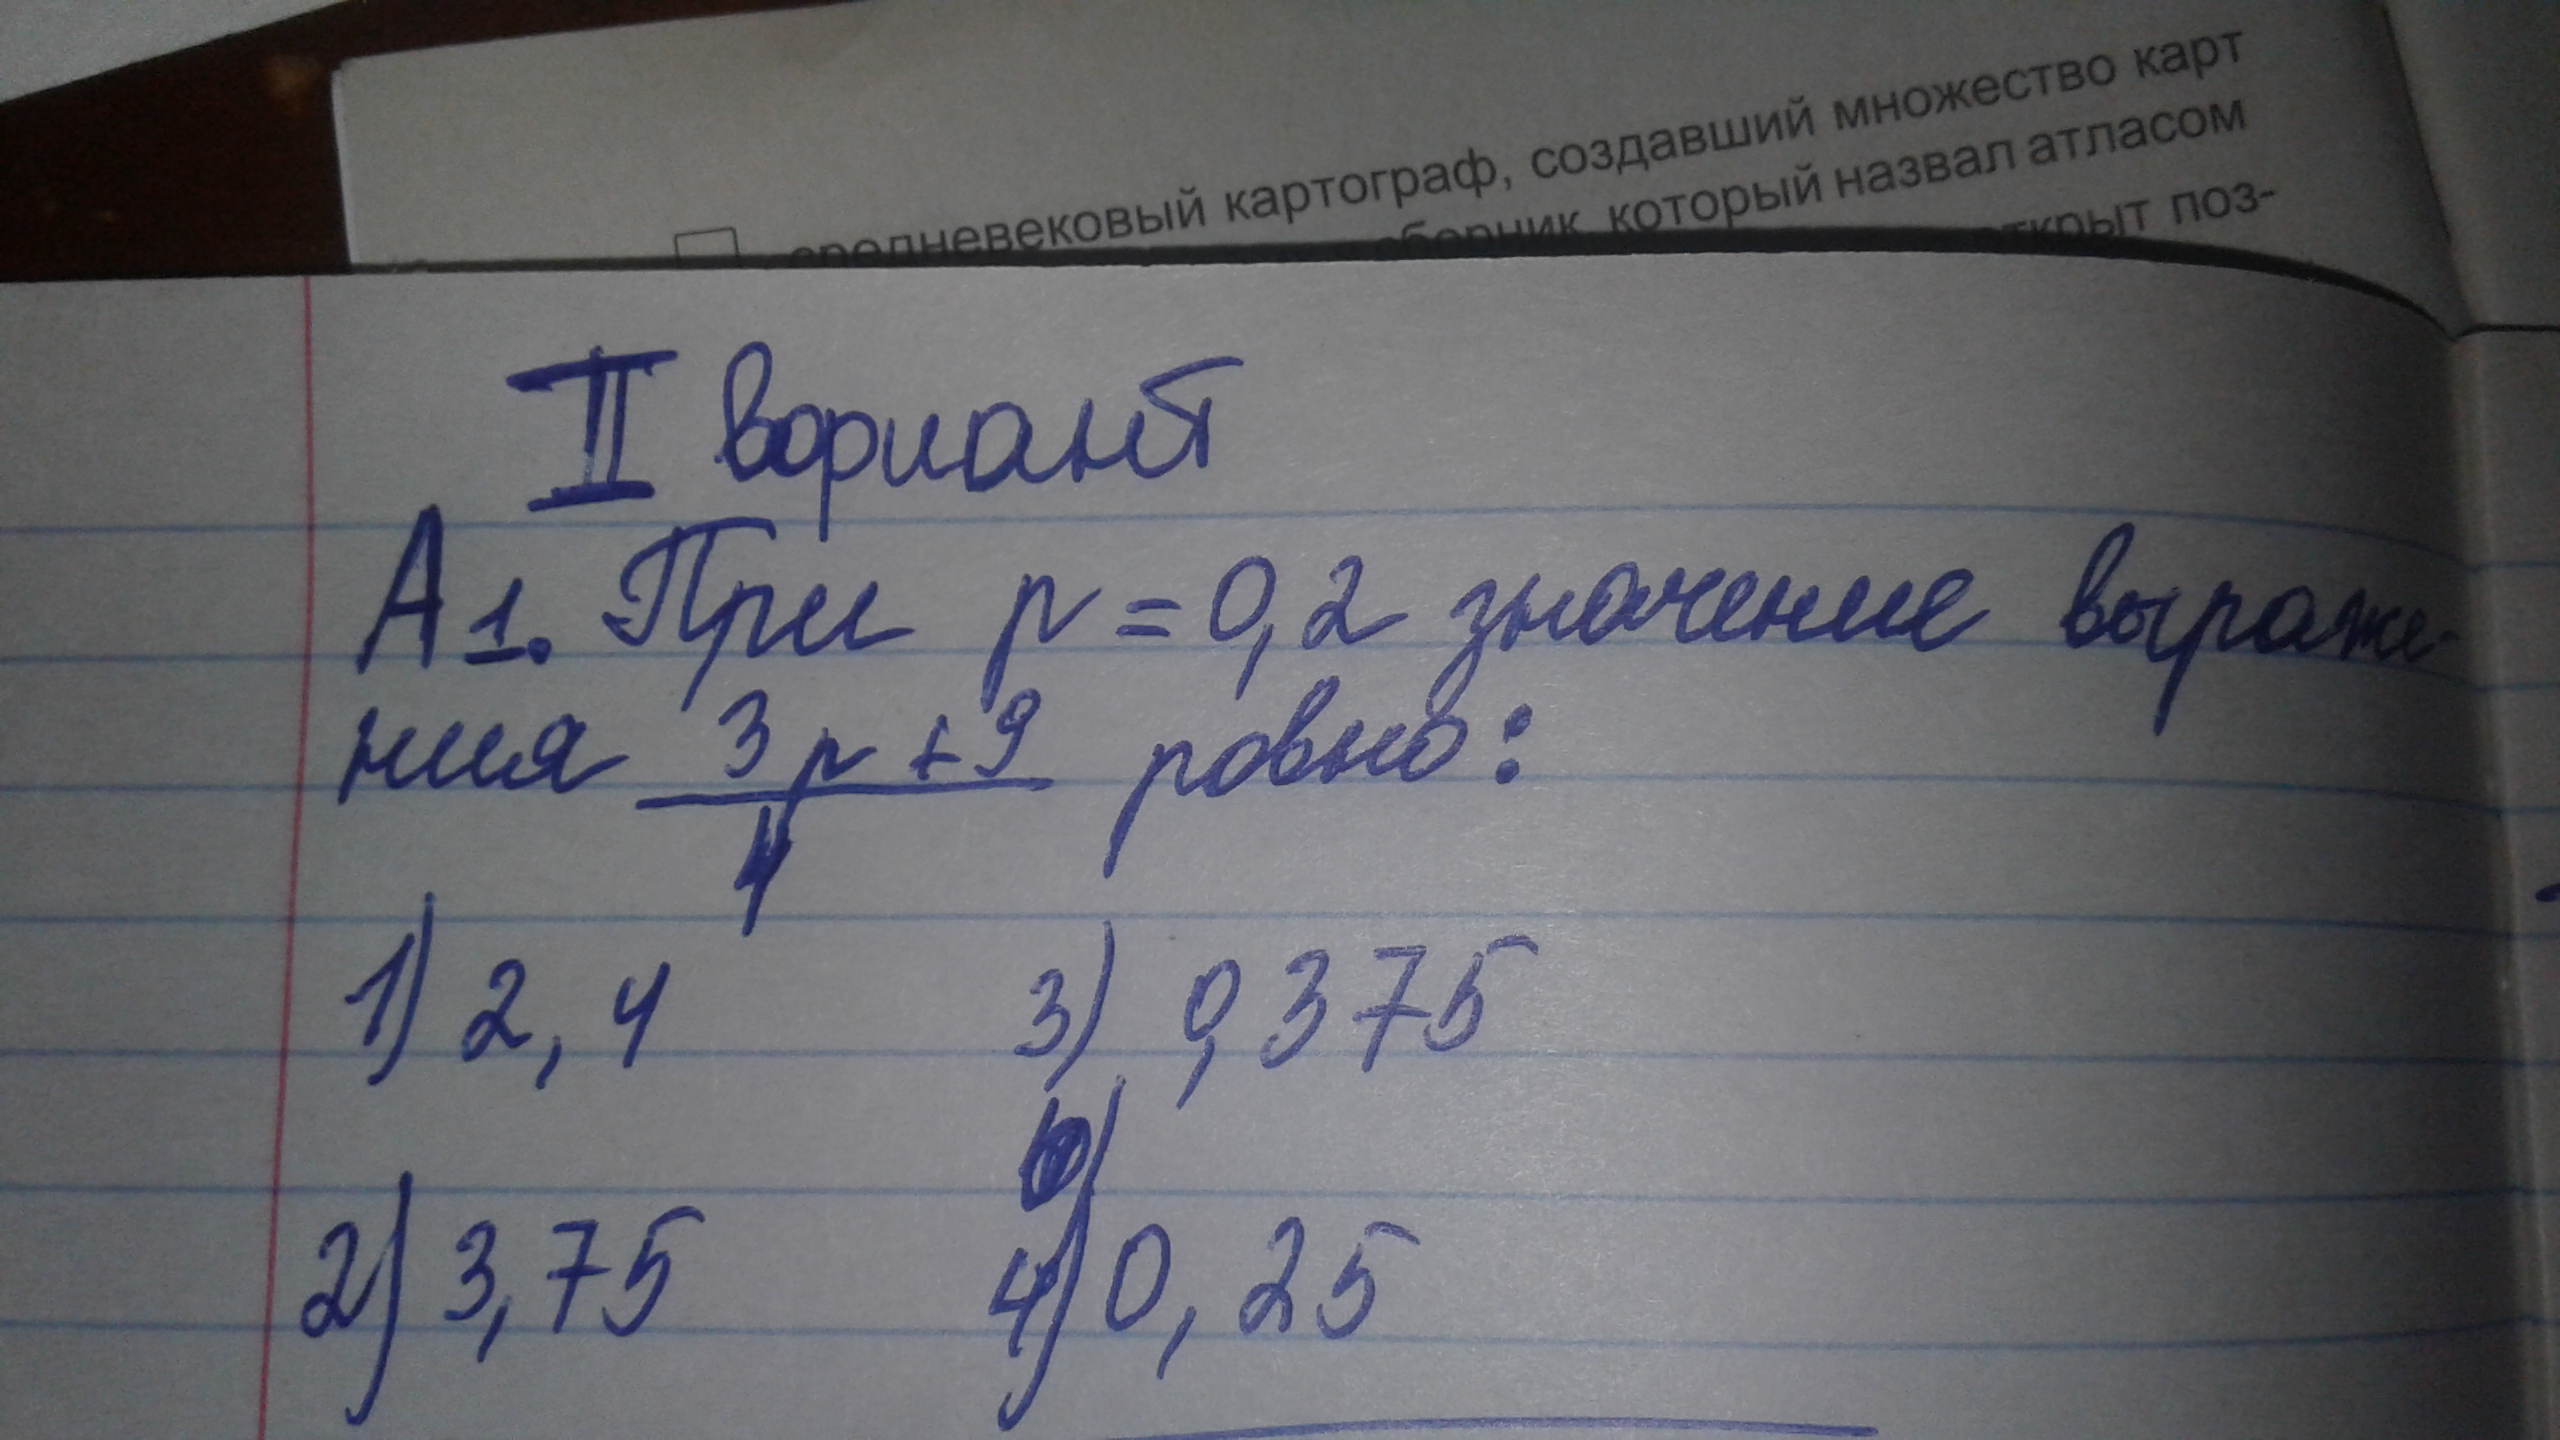 средневековый картограф, создавший множество карт
сборник, который назвал атласом
открыт поз-
II вариант
А1. При p = 0,2 значение выраже-
ния \frac{3p+9}{4} равно:
1) 2,4 3) 0,375
2) 3,75 4) 0,25